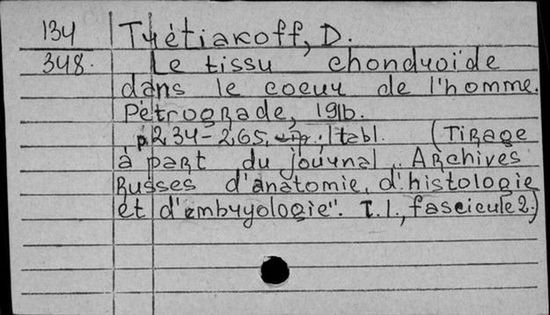 134 Trétiakoff, D.
348. Le tissu chondroïde
dans le coeur de l'homme.
Pétrograde, 1916.
p. 234-265, 1 tabl. (Tirage
à part du journal „Archives
Russes d'anatomie, d'histologie
et d'embryologie". T. I., fascicule 2.)